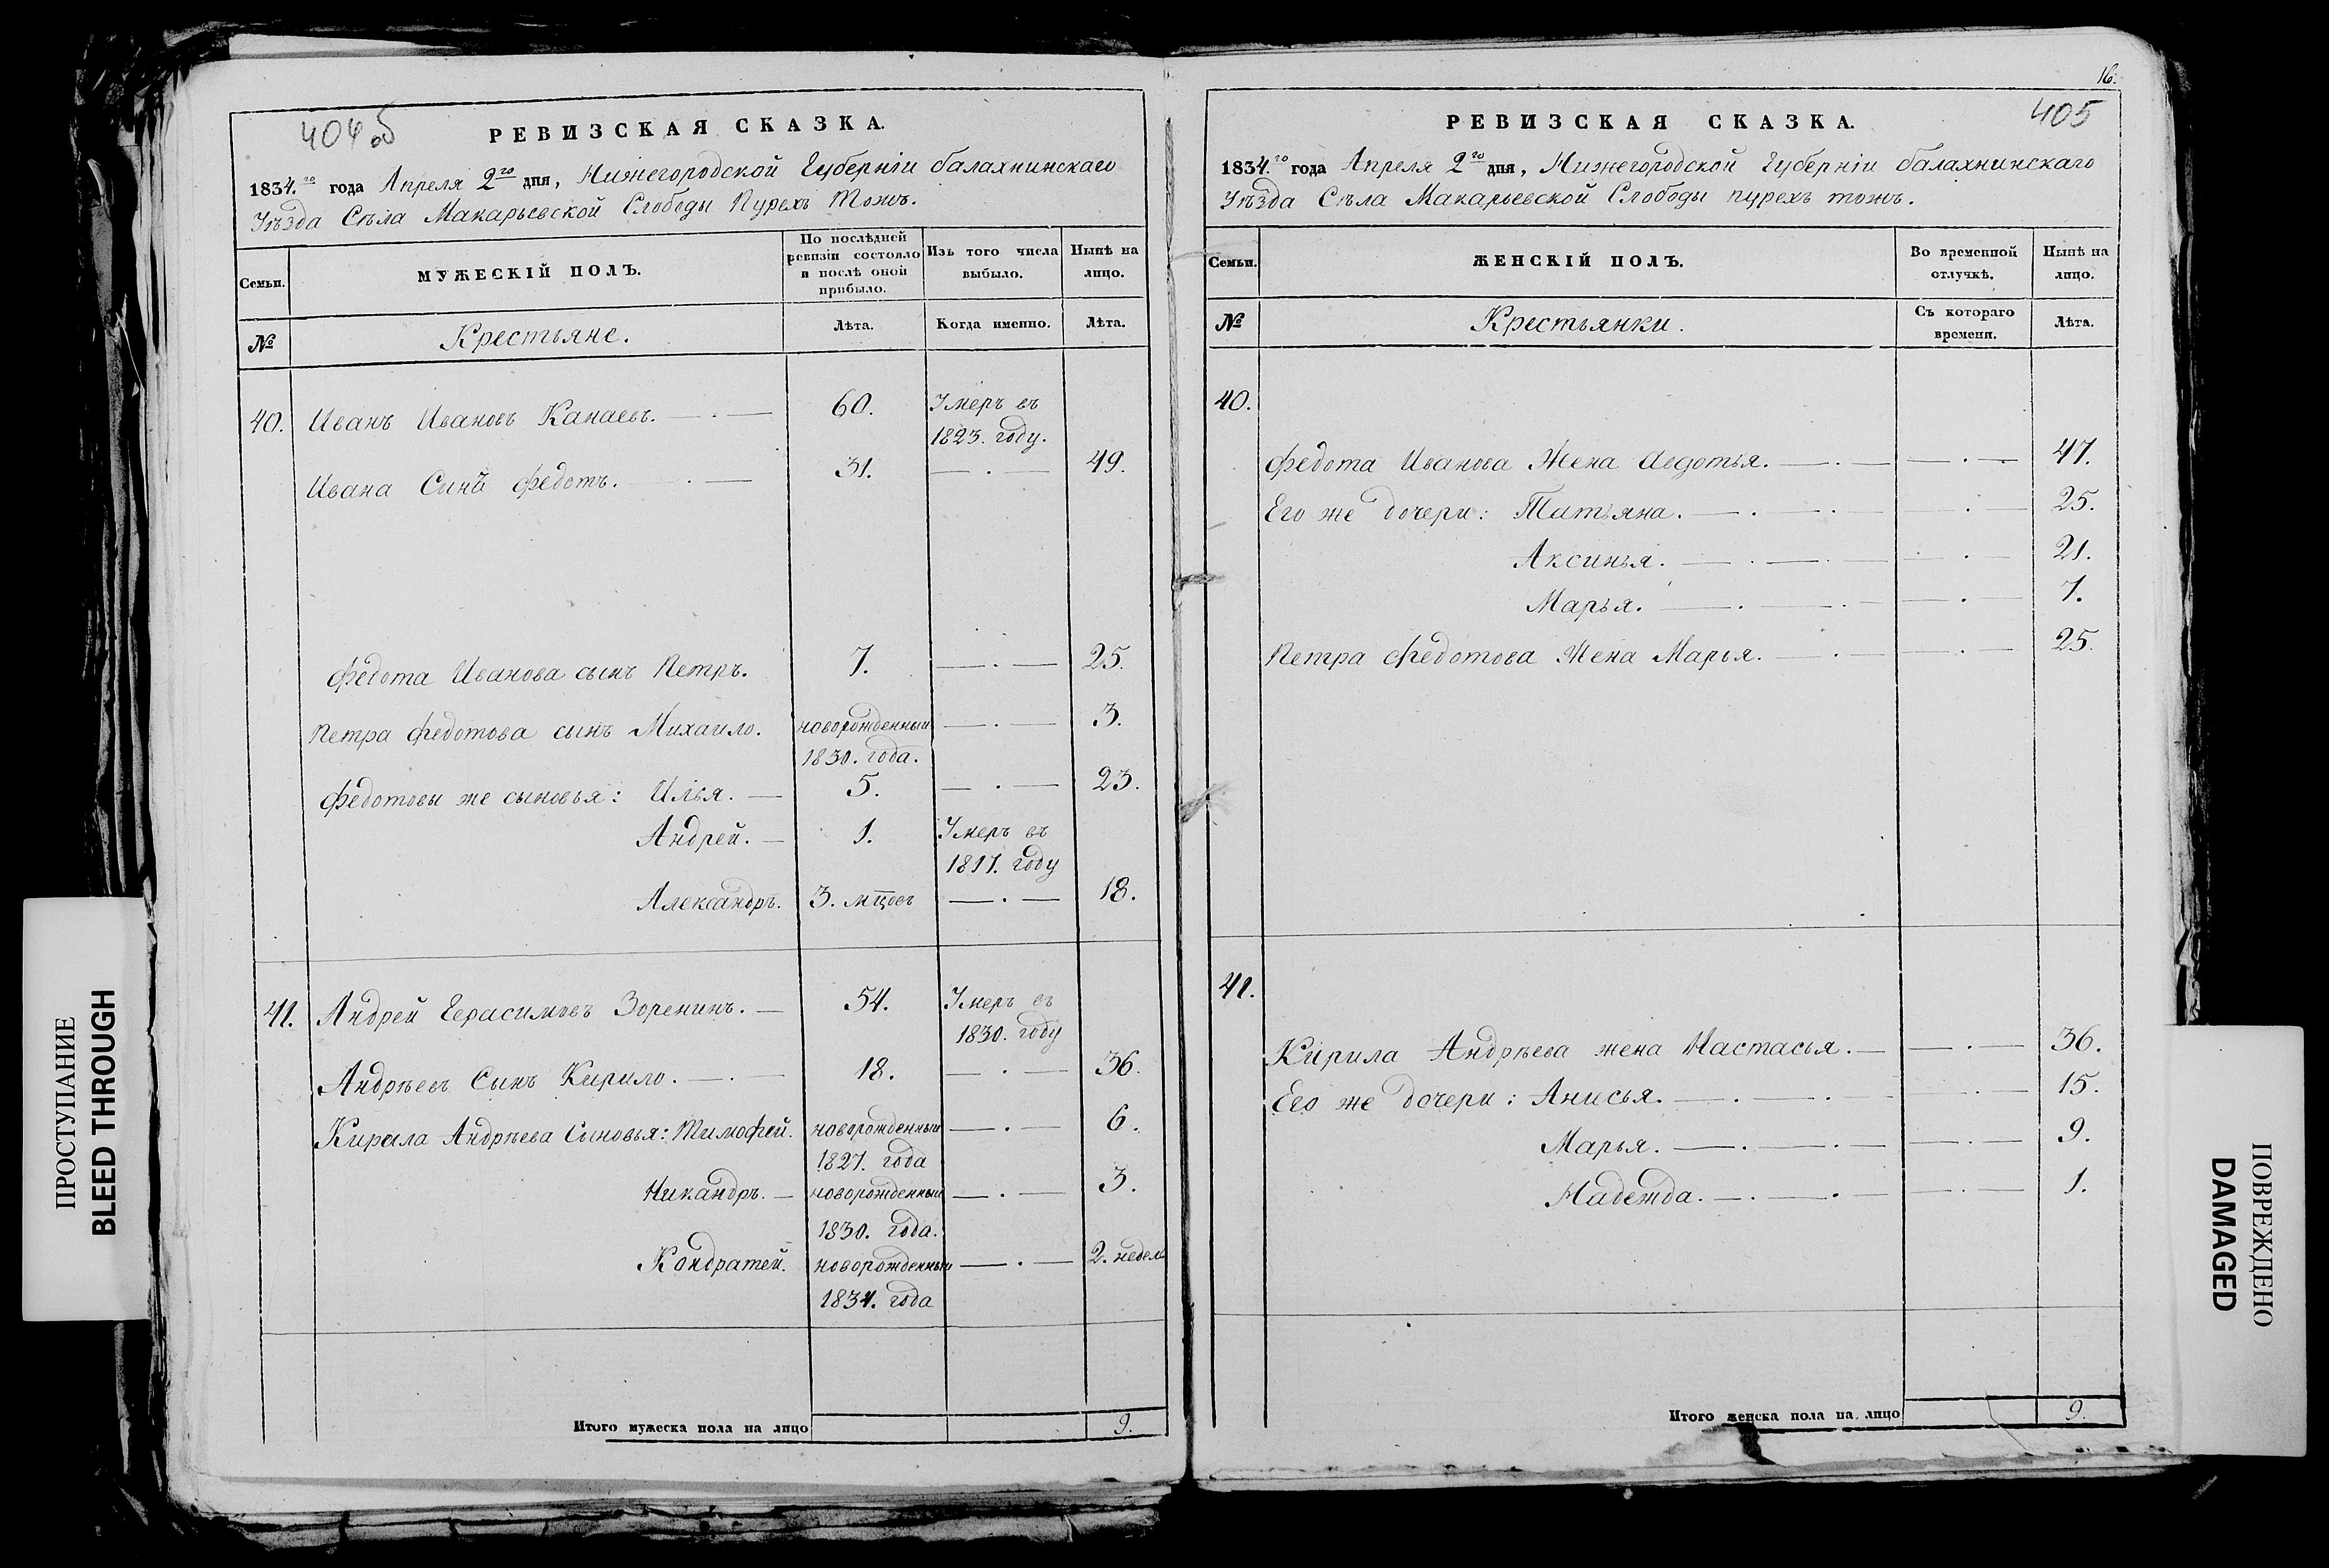 404 об
РЕВИЗСКАЯ СКАЗКА.
1834.го года Апреля 2го дня, Нижегородской Губерніи балахнинскаго
Уѣзда Сѣла Макарьевской Слободы Пурехъ Тожъ.
Семьи. МУЖЕСКІЙ ПОЛЪ. По послѣдней ревизіи состояло и послѣ оной прибыло. Изъ того числа выбыло. Нынѣ на лицо.
№ Крестьяне. Лѣта. Когда именно. Лѣта.
40. Иванъ Ивановъ Канаевъ. 60. Умеръ въ
1823. году.
Ивана Сынъ федотъ. 31. 49.
федота Иванова сынъ Петръ. 7. 25.
Петра федотова сынъ Михаило. новорожденный 3.
1830. года.
федотовы же сыновья: Илья. 5. 23.
Андрей. 1. Умеръ въ
1817. году
Александръ. 3. мцовъ 18.
41. Андрей Герасимовъ Зоренинъ. 54. Умеръ въ
1830. году
Андрѣевъ Сынъ Кирило. 18. 36.
Кирила Андрѣева Сыновья: Тимофей. новорожденный 6.
1827. года
Никандръ. новорожденный 3.
1830. года.
Кондратей. новорожденный 2. недел
1834. года
Итого мужеска пола на лицо 9.
16.
405
РЕВИЗСКАЯ СКАЗКА.
1834.го года Апреля 2го дня, Нижегородской Губерніи балахнинскаго
Уѣзда Сѣла Макарьевской Слободы пурехъ тожъ.
Семьи. ЖЕНСКІЙ ПОЛЪ. Во временной отлучкѣ. Нынѣ на лицо.
№ Крестьянки. Съ котораго времени. Лѣта.
40.
федота Иванова Жена Авдотья. 47.
Его же дочери: Татьяна. 25.
Аксинья. 21.
Марья. 7.
Петра федотова Жена Марья. 25.
41.
Кирила Андрѣева жена Настасья. 36.
Его же дочери: Анисья. 15.
Марья. 9.
Надежда. 1.
Итого женска пола на лицо 9.
ПРОСТУПАНИЕ
BLEED THROUGH
ПОВРЕЖДЕНО
DAMAGED